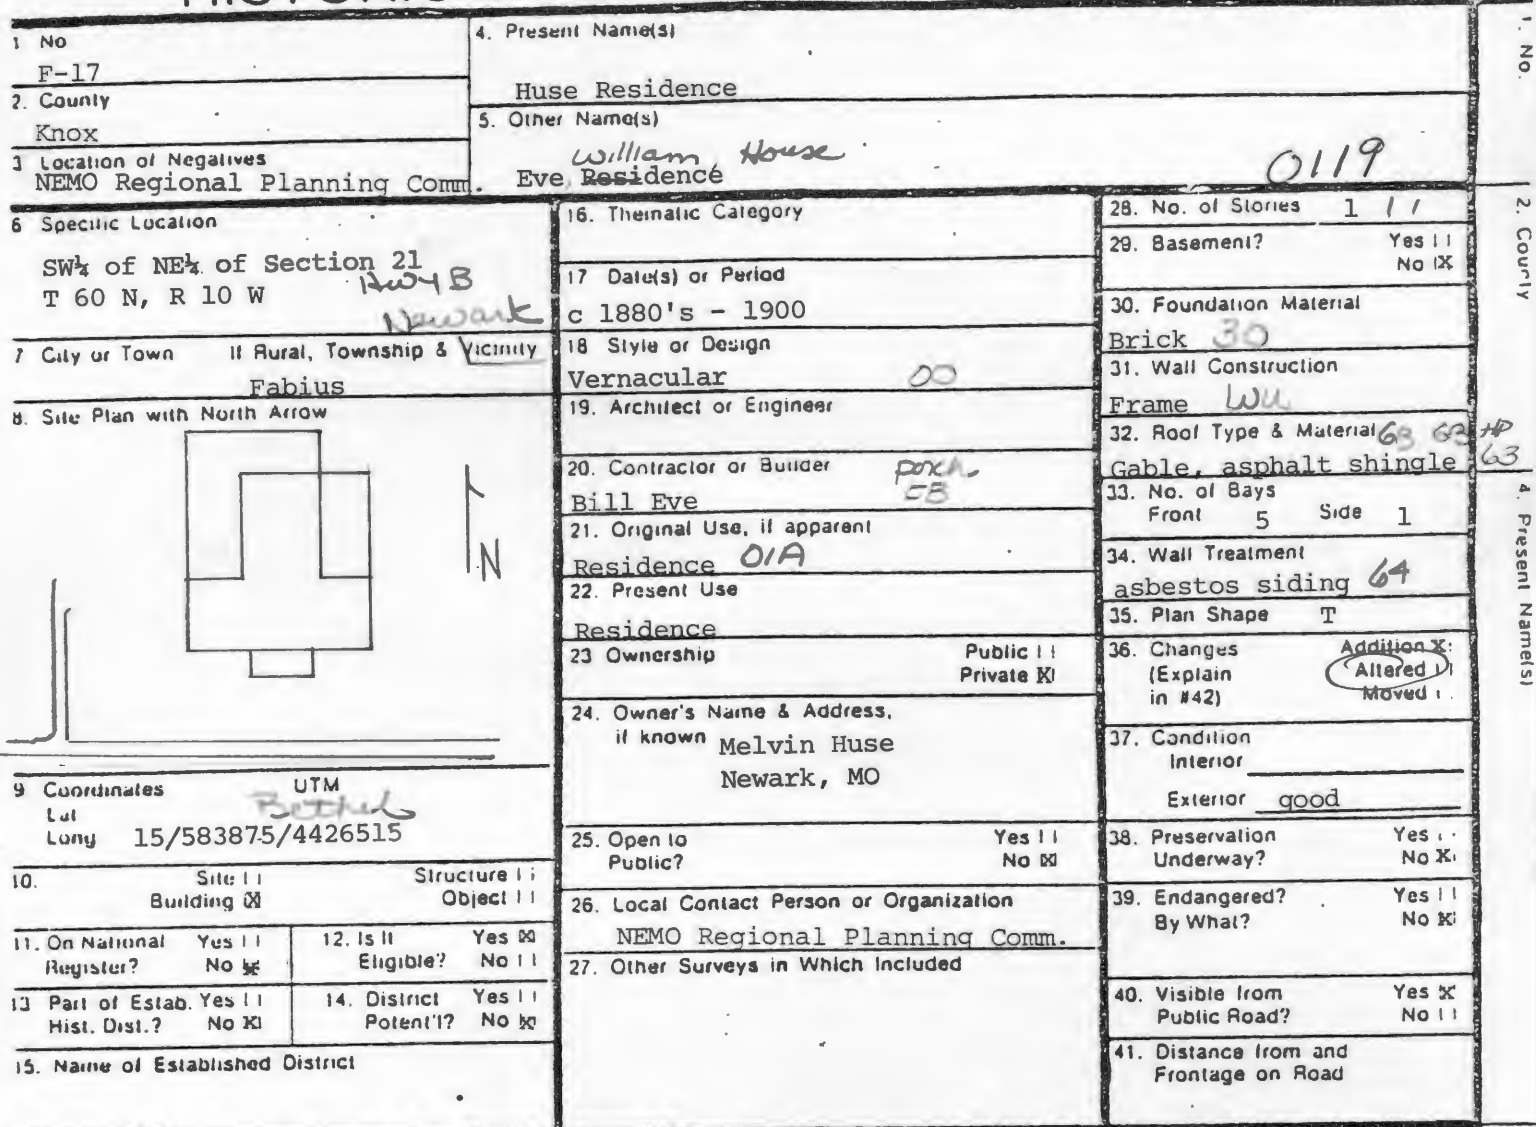 1 No
F-17
2. County
Knox
3 Location of Negatives
NEMO Regional Planning Comm.
4. Present Name(s)
Huse Residence
5. Other Name(s)
William House
Eve, Residence
0119
6 Specific Location
SW¼ of NE¼ of Section 21
T 60 N, R 10 W
Hwy B
Newark
7 City or Town If Rural, Township & Vicinity
Fabius
8. Site Plan with North Arrow
N
9 Coordinates UTM
Bethel
Lat
Long 15/583875/4426515
10. Site Structure
Building X Object
11. On National Yes 12. Is It Yes X
Register? No X Eligible? No
13 Part of Estab. Yes 14. District Yes
Hist. Dist.? No X Potent'l? No X
15. Name of Established District
16. Thematic Category
17 Date(s) or Period
c 1880's - 1900
18 Style or Design
Vernacular 00
19. Architect or Engineer
20. Contractor or Builder
porch
Bill Eve
21. Original Use, if apparent
Residence 01A
22. Present Use
Residence
23 Ownership Public
Private X
24. Owner's Name & Address,
if known Melvin Huse
Newark, MO
25. Open to Yes
Public? No X
26. Local Contact Person or Organization
NEMO Regional Planning Comm.
27. Other Surveys in Which Included
28. No. of Stories 1
29. Basement? Yes
No X
30. Foundation Material
Brick 30
31. Wall Construction
Frame
32. Roof Type & Material 63
Gable, asphalt shingle
33. No. of Bays
Front 5 Side 1
34. Wall Treatment
asbestos siding 64
35. Plan Shape T
36. Changes Addition X
(Explain Altered
in #42) Moved
37. Condition
Interior
Exterior good
38. Preservation Yes
Underway? No X
39. Endangered? Yes
By What? No X
40. Visible from Yes X
Public Road? No
41. Distance from and
Frontage on Road
1. No.
2. County
4. Present Name(s)
HP
63